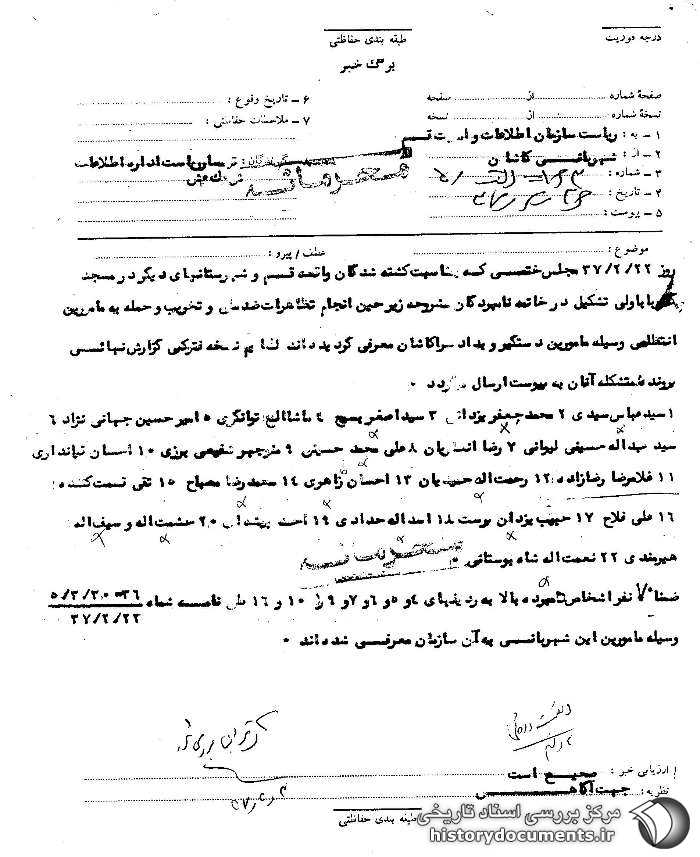 طبقه بندی حفاظتی
درجه فوریت
برگ خبر
صفحهٔ شماره : از صفحه
نسخهٔ شماره : از نسخه
۱ ـ به : ریاست سازمان اطلاعات و امنیت قم
۲ ـ از : شهربانی کاشان
۳ ـ شماره :
۴ ـ تاریخ :
۵ ـ پیوست :
۶ ـ تاریخ وقوع :
۷ ـ ملاحظات حفاظتی :
گیرندگان : ریاست اداره اطلاعات
محرمانه
موضوع :
عطف / پیرو :
روز ۳۷/۲/۲۲ مجلس ختمی که بمناسبت کشته شدگان واقعه قم و شهرستانهای دیگر در مسجد
باباولی تشکیل در خاتمه نامبردگان مشروحه زیر حین انجام تظاهرات ضدملی و تخریب و حمله به مامورین
انتظامی وسیله مامورین دستگیر و بدادسرا کاشان معرفی گردیده‌اند نسخه فتوکپی گزارش نهائی
پرونده متشکله آنان به پیوست ارسال میگردد ۰
۱ سید عباس سیدی ۲ محمد جعفر یزدانی ۳ سید اصغر بسیج ۴ ماشااله توانگری ۵ امیر حسین جهانی نژاد ۶
سید عبداله حسینی لیوانی ۷ رضا انصاریان ۸ علی محمد حسینی ۹ منوچهر شفیعی برزی ۱۰ احسان تیاندازی
۱۱ غلامرضا رضازاده ۱۲ رحمت اله حمیدیان ۱۳ احسان زاهری ۱۴ محمدرضا مصباح ۱۵ تقی قسمت کننده
۱۶ علی فلاح ۱۷ حبیب یزدان پرست ۱۸ اسداله حدادی ۱۹ احمد ۲۰ حشمت اله و سیف اله
هنرمندی ۲۲ نعمت اله شاه بوستانی ۰
محرمانه
ضمنا ۷ نفر اشخاص نامبرده بالا به ردیفهای ۴ و ۵ و ۶ و ۷ و ۹ و ۱۰ و ۱۶ طی نامه شماره ۵/۳/۳۰-۳۶
۳۷/۲/۲۳
وسیله مامورین این شهربانی به آن سازمان معرفی شده‌اند ۰
ارزیابی خبر : صحیح است
نظریه : جهت آگاهی
طبقه بندی حفاظتی
مرکز بررسی اسناد تاریخی
historydocuments.ir